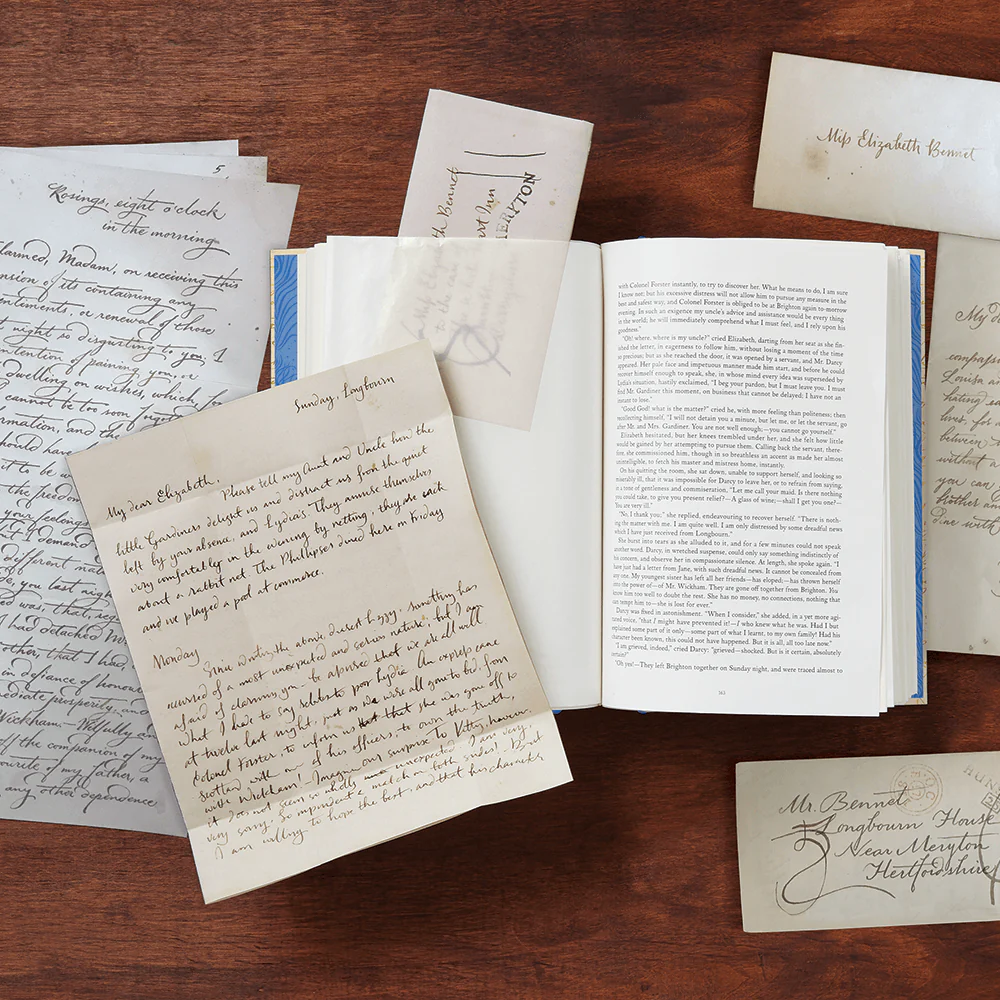 5.
Rosings, eight o'clock
in the morning
larmed, Madam, on receiving this
nsion of its containing any
entiments, or renewal of those
t night so disgusting to you. I
ntention of paining you, or
dwelling on wishes, which, for
cannot be too soon
rmation, and the
should have
it to be
the freedom
your feelings,
demand
different
you last night
was, that,
I had detached
other, that I had,
in defiance of honour
mediate prosperity, and
Wickham.— Wilfully and
off the companion of my
ourite of my father, a
any other dependence
Sunday, Longbourn
My dear Elizabeth,
Please tell my Aunt and Uncle how the
little Gardiners delight us and distract us from the quiet
left by your absence, and Lydia's. They amuse themselves
very comfortably in the evening by netting; they are each
about a rabbit net. The Phillipses dined here on Friday
and we played a pool at commerce.
Monday
Since writing the above, dearest Lizzy, something has
occurred of a most unexpected and serious nature; but I am
afraid of alarming you—be assured that we are all well.
What I have to say relates to poor Lydia. An express came
at twelve last night, just as we were all gone to bed, from
Colonel Forster, to inform us that she was gone off to
Scotland with one of his officers; to own the truth,
with Wickham! Imagine our surprise. To Kitty, however,
it does not seem so wholly unexpected. I am very,
very sorry. So imprudent a match on both sides! But
I am willing to hope the best, and that his character
th Bennet
art Inn
MERYTON
with Colonel Forster instantly, to try to discover her. What he means to do, I am sure
I know not; but his excessive distress will not allow him to pursue any measure in the
best and safest way, and Colonel Forster is obliged to be at Brighton again to-morrow
evening. In such an exigence my uncle's advice and assistance would be every thing
in the world; he will immediately comprehend what I must feel, and I rely upon his
goodness."
"Oh! where, where is my uncle?" cried Elizabeth, darting from her seat as she fin-
ished the letter, in eagerness to follow him, without losing a moment of the time
so precious; but as she reached the door, it was opened by a servant, and Mr. Darcy
appeared. Her pale face and impetuous manner made him start, and before he could
recover himself enough to speak, she, in whose mind every idea was superseded by
Lydia's situation, hastily exclaimed, "I beg your pardon, but I must leave you. I must
find Mr. Gardiner this moment, on business that cannot be delayed; I have not an
instant to lose."
"Good God! what is the matter?" cried he, with more feeling than politeness; then
recollecting himself, "I will not detain you a minute, but let me, or let the servant, go
after Mr. and Mrs. Gardiner. You are not well enough;—you cannot go yourself."
Elizabeth hesitated, but her knees trembled under her, and she felt how little
would be gained by her attempting to pursue them. Calling back the servant, there-
fore, she commissioned him, though in so breathless an accent as made her almost
unintelligible, to fetch his master and mistress home, instantly.
On his quitting the room, she sat down, unable to support herself, and looking so
miserably ill, that it was impossible for Darcy to leave her, or to refrain from saying,
in a tone of gentleness and commiseration, "Let me call your maid. Is there nothing
you could take, to give you present relief?—A glass of wine;—shall I get you one?—
You are very ill."
"No, I thank you;" she replied, endeavouring to recover herself. "There is noth-
ing the matter with me. I am quite well. I am only distressed by some dreadful news
which I have just received from Longbourn."
She burst into tears as she alluded to it, and for a few minutes could not speak
another word. Darcy, in wretched suspense, could only say something indistinctly of
his concern, and observe her in compassionate silence. At length, she spoke again. "I
have just had a letter from Jane, with such dreadful news. It cannot be concealed from
any one. My youngest sister has left all her friends—has eloped;—has thrown herself
into the power of—of Mr. Wickham. They are gone off together from Brighton. You
know him too well to doubt the rest. She has no money, no connections, nothing that
can tempt him to—she is lost for ever."
Darcy was fixed in astonishment. "When I consider," she added, in a yet more agi-
tated voice, "that I might have prevented it!—I who knew what he was. Had I but
explained some part of it only—some part of what I learnt, to my own family! Had his
character been known, this could not have happened. But it is all, all too late now."
"I am grieved, indeed," cried Darcy; "grieved—shocked. But is it certain, absolutely
certain?"
"Oh yes!—They left Brighton together on Sunday night, and were traced almost to
Miss Elizabeth Bennet
My d
compass
Louisa an
hating ea
lives, for a
between
without a
you can
brother an
Dine with
Mr. Bennet
Longbourn House
Near Meryton
Hertfordshire